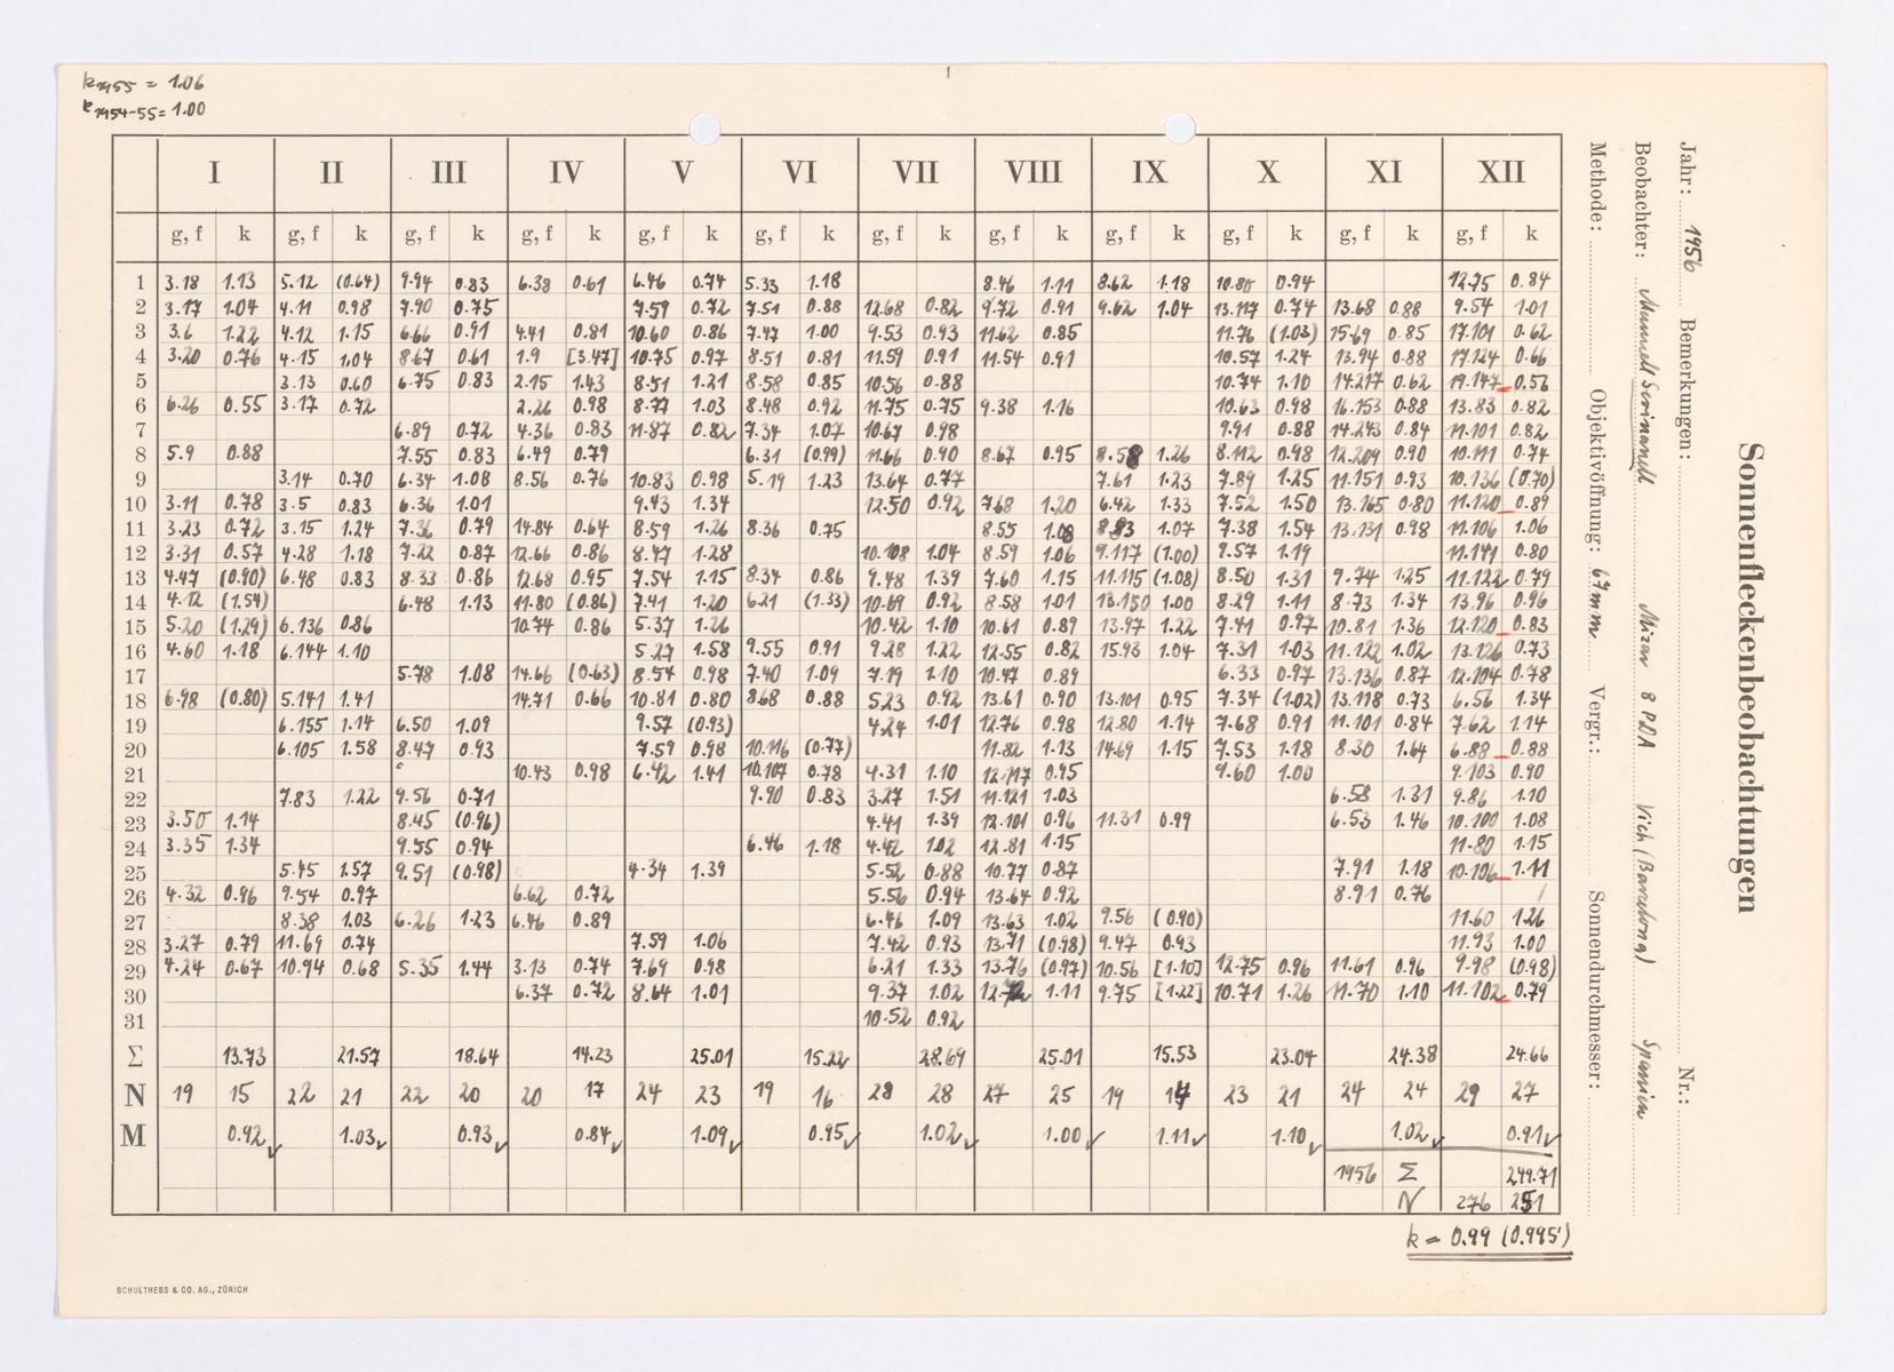 k1955 = 1.06
k1954-55 = 1.00
Sonnenfleckenbeobachtungen
Jahr: 1956 Bemerkungen: Nr.:
Beobachter: 8 PDA Vich (Barcelona) Spanien
Methode: Objektivöffnung: 67 mm Vergr.: Sonnendurchmesser:
I II III IV V VI VII VIII IX X XI XII
g, f k g, f k g, f k g, f k g, f k g, f k g, f k g, f k g, f k g, f k g, f k g, f k
1 3.18 1.13 5.12 (0.64) 9.94 0.83 6.38 0.61 6.46 0.74 5.33 1.18 8.46 1.11 8.62 1.18 10.80 0.94 12.75 0.84
2 3.17 1.04 4.11 0.98 7.90 0.75 7.59 0.72 7.51 0.88 12.68 0.82 9.72 0.91 9.62 1.04 13.117 0.74 13.68 0.88 9.54 1.01
3 3.6 1.22 4.12 1.15 6.66 0.91 4.41 0.81 10.60 0.86 7.47 1.00 9.53 0.93 11.62 0.85 11.76 (1.03) 15.69 0.85 17.101 0.62
4 3.20 0.76 4.15 1.04 8.67 0.61 1.9 [3.47] 10.75 0.97 8.51 0.81 11.59 0.91 11.54 0.91 10.57 1.24 13.94 0.88 17.124 0.66
5 3.13 0.60 6.75 0.83 2.15 1.43 8.51 1.21 8.58 0.85 10.56 0.88 10.74 1.10 14.217 0.62 19.147 0.56
6 6.26 0.55 3.17 0.72 2.26 0.98 8.77 1.03 8.48 0.92 11.75 0.75 9.38 1.16 10.63 0.98 16.153 0.88 13.83 0.82
7 6.89 0.72 4.36 0.83 11.87 0.82 7.34 1.07 10.67 0.98 9.91 0.88 14.243 0.84 11.101 0.82
8 5.9 0.88 7.55 0.83 6.49 0.79 6.31 (0.99) 11.66 0.90 8.67 0.95 8.58 1.26 8.112 0.98 12.209 0.90 10.111 0.74
9 3.14 0.70 6.34 1.08 8.56 0.76 10.83 0.98 5.19 1.23 13.64 0.77 7.61 1.23 7.89 1.25 11.151 0.93 10.136 (0.70)
10 3.11 0.78 3.5 0.83 6.36 1.01 9.43 1.34 12.50 0.92 7.68 1.20 6.42 1.33 7.52 1.50 13.165 0.80 11.120 0.89
11 3.23 0.72 3.15 1.24 7.36 0.79 14.84 0.64 8.59 1.26 8.36 0.75 8.55 1.08 8.83 1.07 7.38 1.54 13.131 0.98 11.106 1.06
12 3.31 0.57 4.28 1.18 7.22 0.87 12.66 0.86 8.47 1.28 10.108 1.04 8.59 1.06 9.117 (1.00) 9.57 1.19 11.141 0.80
13 4.47 (0.90) 6.48 0.83 8.33 0.86 12.68 0.95 7.54 1.15 8.34 0.86 9.48 1.39 7.60 1.15 11.115 (1.08) 8.50 1.31 9.74 1.25 11.122 0.79
14 4.12 (1.54) 6.48 1.13 11.80 (0.86) 7.41 1.20 6.21 (1.33) 10.69 0.92 8.58 1.01 13.150 1.00 8.29 1.11 8.73 1.34 13.96 0.96
15 5.20 (1.29) 6.136 0.86 10.74 0.86 5.37 1.26 10.42 1.10 10.61 0.89 13.97 1.22 7.41 0.97 10.81 1.36 12.120 0.83
16 4.60 1.18 6.144 1.10 5.27 1.58 9.55 0.91 9.28 1.22 12.55 0.82 15.93 1.04 7.31 1.03 11.122 1.02 13.126 0.73
17 5.78 1.08 14.66 (0.63) 8.54 0.98 7.40 1.09 7.19 1.10 10.47 0.89 6.33 0.97 13.136 0.87 12.104 0.78
18 6.98 (0.80) 5.141 1.41 14.71 0.66 10.81 0.80 8.68 0.88 5.23 0.92 13.61 0.90 13.101 0.95 7.34 (1.02) 13.118 0.73 6.56 1.34
19 6.155 1.14 6.50 1.09 9.57 (0.93) 4.24 1.01 12.76 0.98 12.80 1.14 7.68 0.91 11.101 0.84 7.62 1.14
20 6.105 1.58 8.47 0.93 7.59 0.98 10.116 (0.77) 11.82 1.13 14.69 1.15 7.53 1.18 8.30 1.64 6.88 0.88
21 10.43 0.98 6.42 1.41 10.107 0.78 4.31 1.10 12.117 0.95 9.60 1.00 9.103 0.90
22 7.83 1.22 9.56 0.71 9.90 0.83 3.27 1.51 11.121 1.03 6.58 1.31 9.86 1.10
23 3.50 1.14 8.45 (0.96) 4.41 1.39 12.101 0.96 11.31 0.99 6.53 1.46 10.100 1.08
24 3.35 1.34 9.55 0.94 6.46 1.18 4.42 1.02 12.81 1.15 11.80 1.15
25 5.45 1.57 9.51 (0.98) 4.34 1.39 5.52 0.88 10.77 0.87 7.91 1.18 10.106 1.11
26 4.32 0.96 9.54 0.97 6.62 0.72 5.56 0.94 13.64 0.92 8.91 0.76
27 8.38 1.03 6.26 1.23 6.46 0.89 6.46 1.09 13.63 1.02 9.56 (0.90) 11.60 1.26
28 3.27 0.79 11.69 0.74 7.59 1.06 7.42 0.93 13.71 (0.98) 9.47 0.93 11.93 1.00
29 4.24 0.67 10.94 0.68 5.35 1.44 3.13 0.74 7.69 0.98 6.21 1.33 13.76 (0.97) 10.56 [1.10] 12.75 0.96 11.61 0.96 9.98 (0.98)
30 6.37 0.72 8.64 1.01 9.37 1.02 12.72 1.11 9.75 [1.22] 10.71 1.26 11.70 1.10 11.102 0.79
31 10.52 0.92
Σ 13.73 21.57 18.64 14.23 25.01 15.22 28.69 25.01 15.53 23.04 24.38 24.66
N 19 15 22 21 22 20 20 17 24 23 19 16 28 28 27 25 19 14 23 21 24 24 29 27
M 0.92 1.03 0.93 0.84 1.09 0.95 1.02 1.00 1.11 1.10 1.02 0.91
1956 Σ 249.71
N 276 251
k = 0.99 (0.995)
SCHULTHESS & CO. AG., ZÜRICH